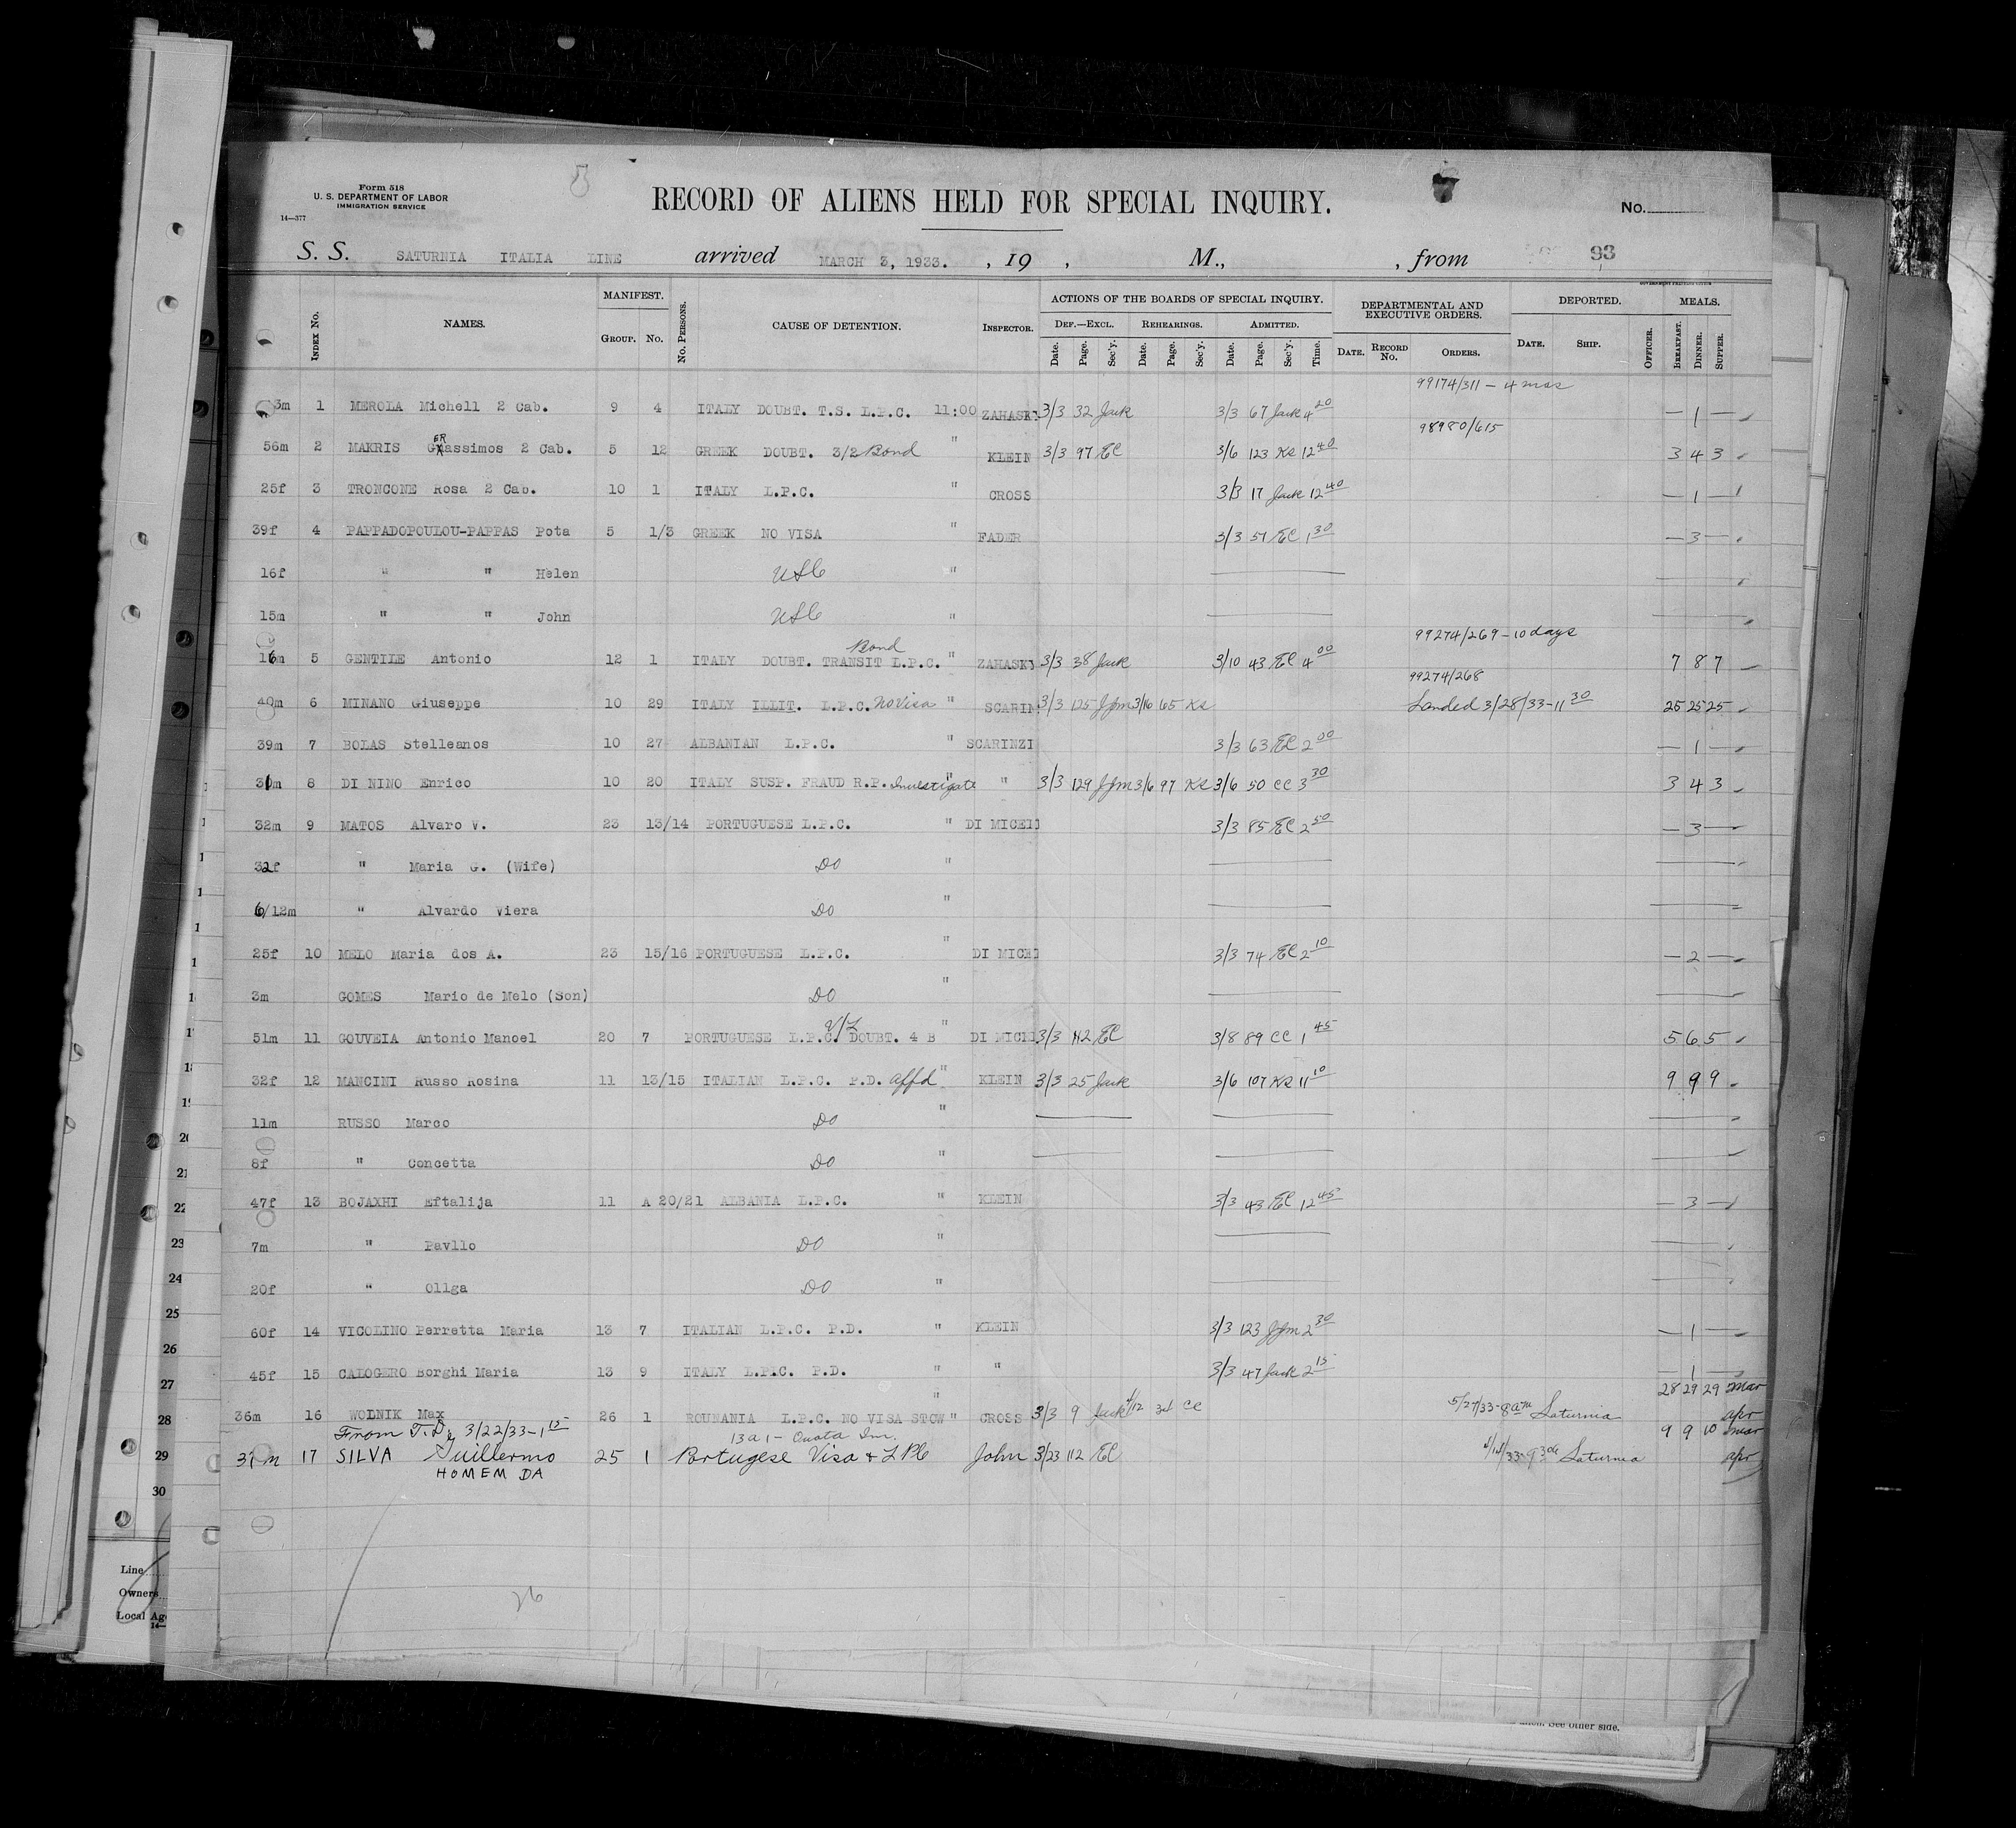 Form 518
U. S. DEPARTMENT OF LABOR
IMMIGRATION SERVICE
14—377
RECORD OF ALIENS HELD FOR SPECIAL INQUIRY.
No.
S. S. SATURNIA ITALIA LINE arrived MARCH 3, 1933. , 19 , M., , from 93
INDEX No. NAMES. MANIFEST. GROUP. No. No. PERSONS. CAUSE OF DETENTION. INSPECTOR. ACTIONS OF THE BOARDS OF SPECIAL INQUIRY. DEPARTMENTAL AND EXECUTIVE ORDERS. DEPORTED. MEALS.
DEF.—EXCL. REHEARINGS. ADMITTED.
Date. Page. Sec'y. Date. Page. Sec'y. Date. Page. Sec'y. Time. DATE. RECORD No. ORDERS. DATE. SHIP. OFFICER. BREAKFAST. DINNER. SUPPER.
99174/311 – 4 mos
3m 1 MEROLA Michell 2 Cab. 9 4 ITALY DOUBT. T.S. L.P.C. 11:00 ZAHASKY 3/3 32 Jack 3/3 67 Jack 4 20 — 1 —
98980/615
56m 2 MAKRIS GERassimos 2 Cab. 5 12 GREEK DOUBT. 3/2 Bond " KLEIN 3/3 97 EC 3/6 123 KS 12 40 3 4 3
25f 3 TRONCONE Rosa 2 Cab. 10 1 ITALY L.P.C. " CROSS 3/3 17 Jack 12 40 — 1 —
39f 4 PAPPADOPOULOU-PAPPAS Pota 5 1/3 GREEK NO VISA " FADER 3/3 51 EC 1 30 — 3 —
16f " " Helen USC "
15m " " John USC "
99274/269 – 10 days
16m 5 GENTILE Antonio 12 1 ITALY DOUBT. TRANSIT L.P.C. Bond " ZAHASKY 3/3 38 Jack 3/10 43 EC 4 00 7 8 7
99274/268
40m 6 MINANO Giuseppe 10 29 ITALY ILLIT. L.P.C. No Visa " SCARIN 3/3 125 JJM 3/16 65 KS Landed 3/28/33 – 11 30 25 25 25
39m 7 BOLAS Stelleanos 10 27 ALBANIAN L.P.C. " SCARINZI 3/3 63 EC 2 00 — 1 —
31m 8 DI NINO Enrico 10 20 ITALY SUSP. FRAUD R.P. Investigate " " 3/3 129 JJM 3/6 97 KS 3/6 50 CC 3 30 3 4 3
32m 9 MATOS Alvaro V. 23 13/14 PORTUGUESE L.P.C. " DI MICELI 3/3 85 EC 2 50 — 3 —
32f " Maria G. (Wife) DO "
6/12m " Alvardo Viera DO "
25f 10 MELO Maria dos A. 23 15/16 PORTUGUESE L.P.C. " DI MICEI 3/3 74 EC 2 10 — 2 —
3m GOMES Mario de Melo (Son) DO "
51m 11 GOUVEIA Antonio Manoel 20 7 PORTUGUESE L.P.C. DOUBT. 4 B " DI MICEI 3/3 112 EC 3/8 89 CC 1 45 5 6 5
32f 12 MANCINI Russo Rosina 11 13/15 ITALIAN L.P.C. P.D. affd " KLEIN 3/3 25 Jack 3/6 107 KS 11 10 9 9 9
11m RUSSO Marco DO "
8f " Concetta DO "
47f 13 BOJAXHI Eftalija 11 A 20/21 ALBANIA L.P.C. " KLEIN 3/3 43 EC 12 45 — 3 —
7m " Pavllo DO "
20f " Ollga DO "
60f 14 VICOLINO Perretta Maria 13 7 ITALIAN L.P.C. P.D. " KLEIN 3/3 123 JJM 2 30 — 1 —
45f 15 CALOGERO Borghi Maria 13 9 ITALY L.P.C. P.D. " " 3/3 47 Jack 2 15 — 1 —
28 29 29 Mar
36m 16 WOLNIK Max 26 1 ROUMANIA L.P.C. NO VISA STOW " CROSS 3/3 9 Jack 4/12 CC 5/27/33 – 8 am Saturnia apr
From T.D. 3/22/33 – 1 15 13a1 – Quota Im. 9 9 10 mar
37m 17 SILVA Guillermo 25 1 Portugese Visa + LPC John 3/23 112 EC Saturnia apr
HOMEM DA
20
21
22
23
24
25
26
27
28
29
30
26
Line
Owners
Local Age
See other side.